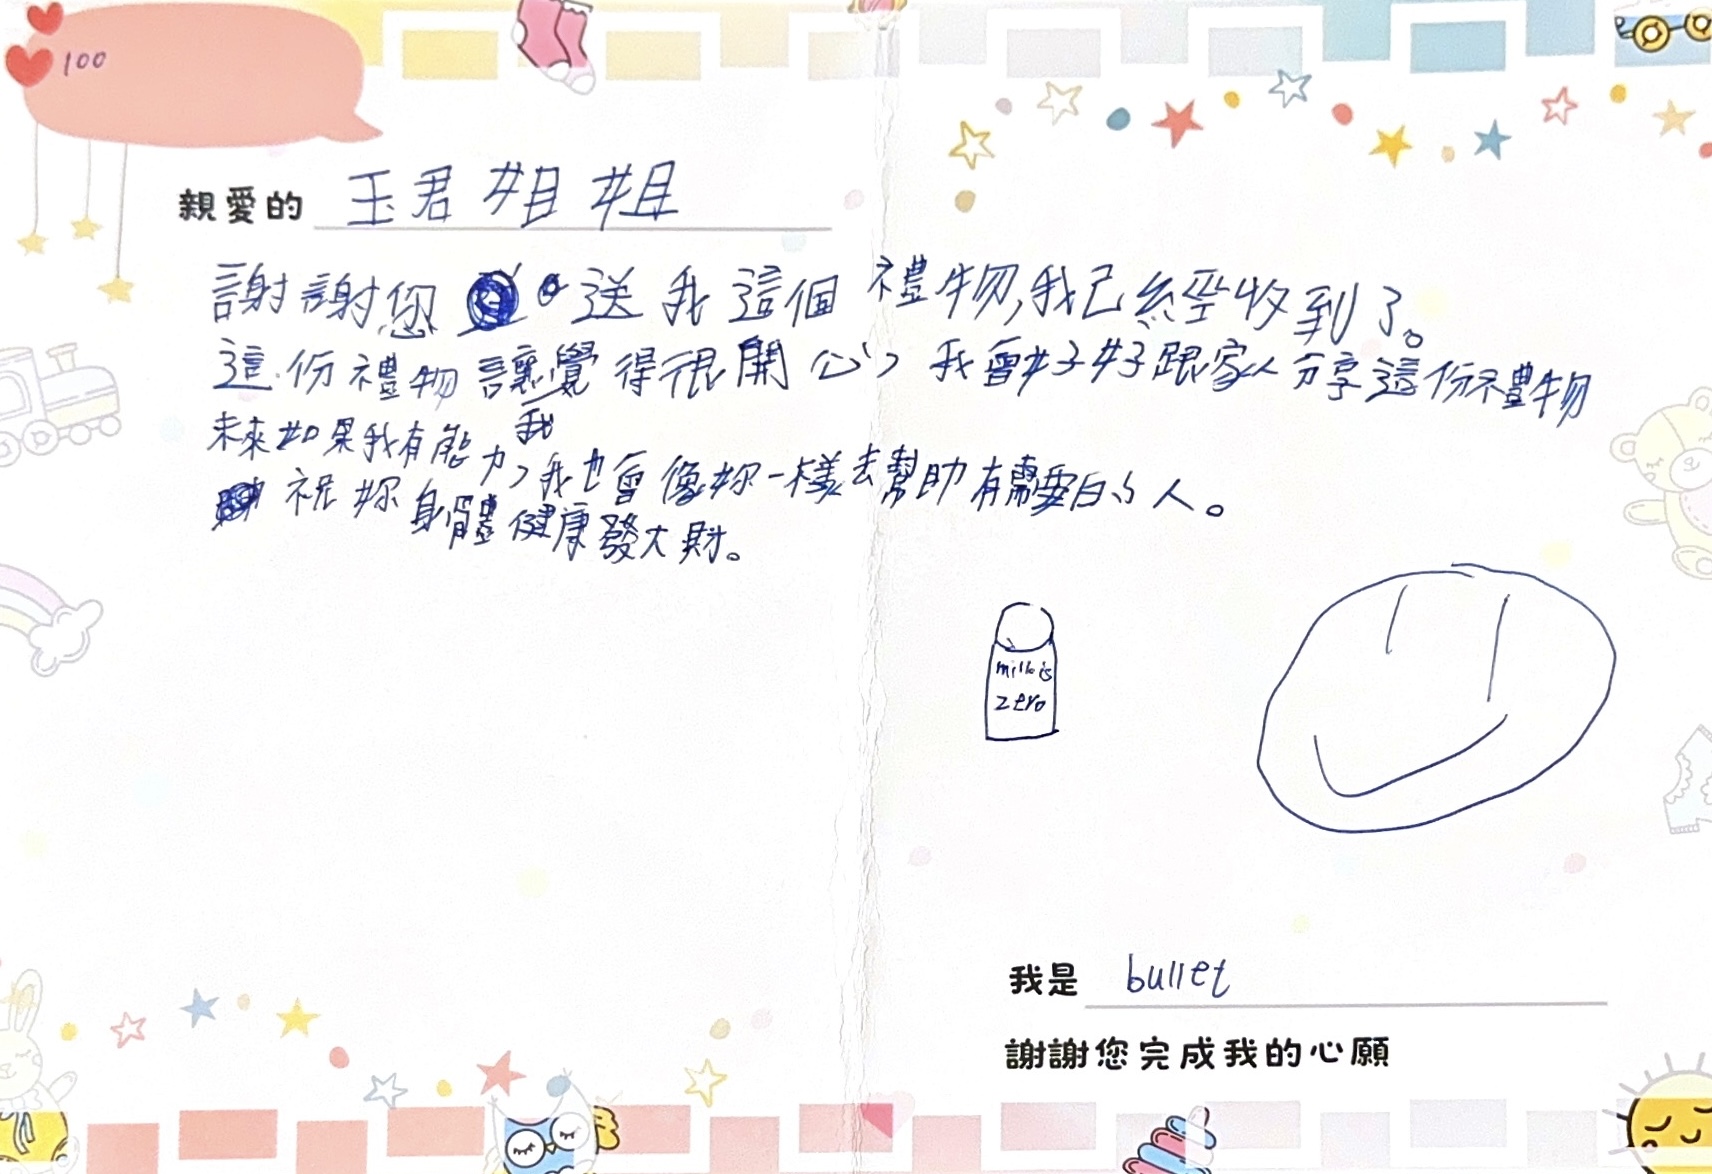 100
親愛的 玉君姐姐
謝謝您送我這個禮物,我已經收到了。
這份禮物讓我覺得很開心 我會好好跟家人分享這份禮物
未來如果我有能力 我也會像妳一樣去幫助有需要的人。
祝妳身體健康發大財。
milk is
zero
我是 bullet
謝謝您完成我的心願